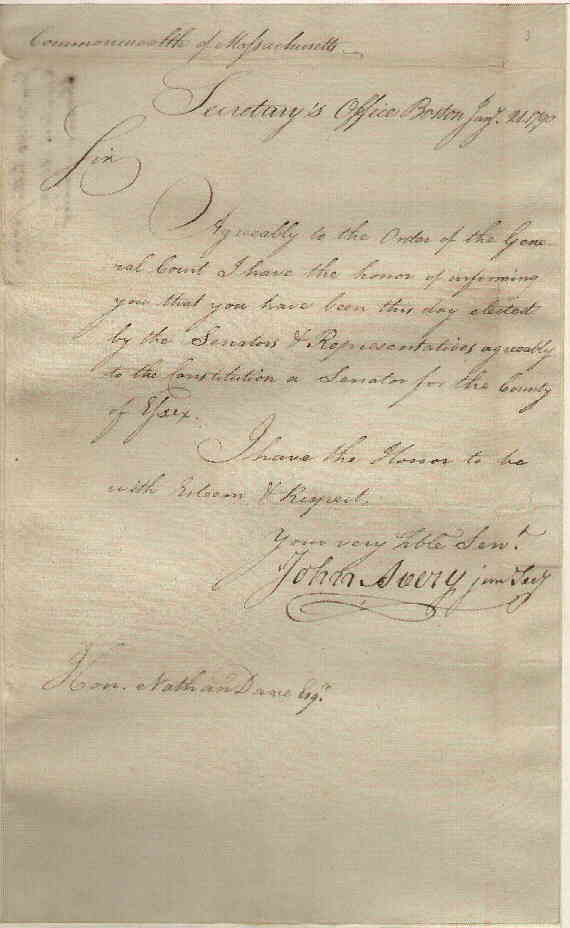 Commonwealth of Massachusetts
3
Secretary's Office Boston Jany. 21. 1790
Sir
Agreeably to the Order of the Gene-
ral Court I have the honor of informing
you that you have been this day elected
by the Senators & Representatives agreeably
to the Constitution a Senator for the County
of Essex.
I have the Honor to be
with Esteem & Respect
Your very hble Servt.
John Avery junr Secy
Hon. Nathan Dane Esqr.